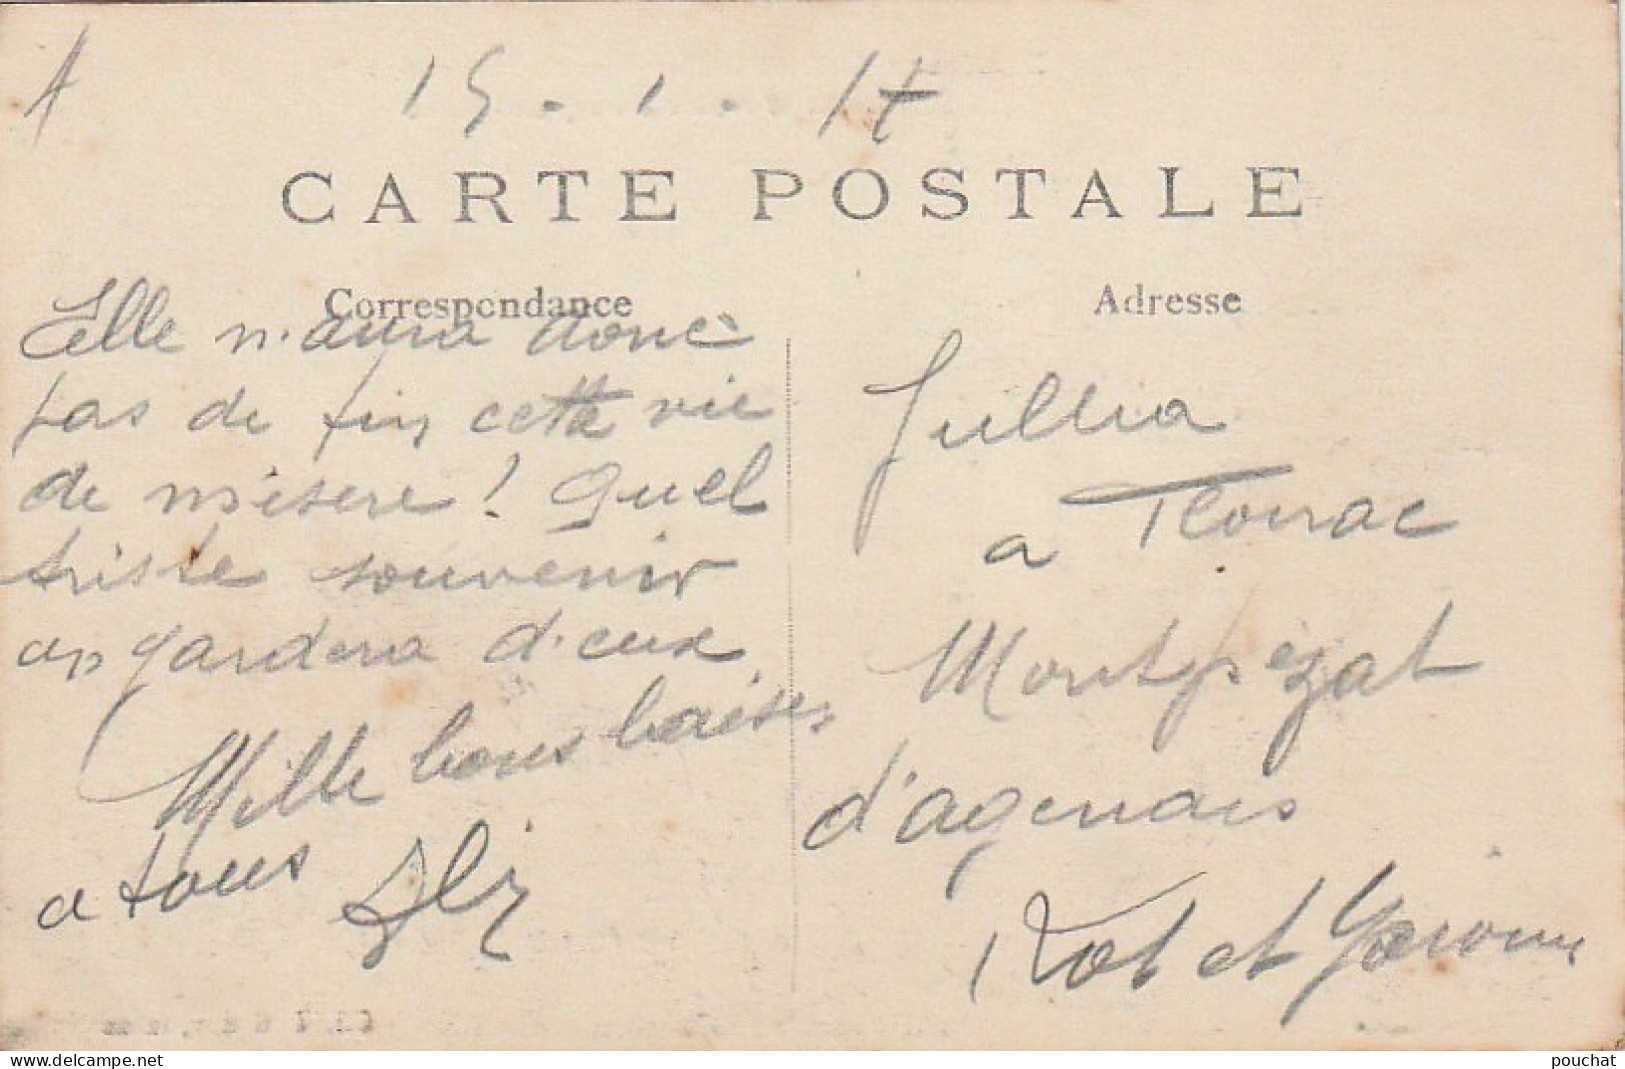 15 . 1 . 17
CARTE POSTALE
Correspondance
Elle n'aura donc
pas de fin cette vie
de misere ! Quel
triste souvenir
on gardera d'eux
Mille bons baisers
a tous
Adresse
Jullia
a
Montpézat
d'agenais
Lot et Garonne
delcampe.net
pouchat